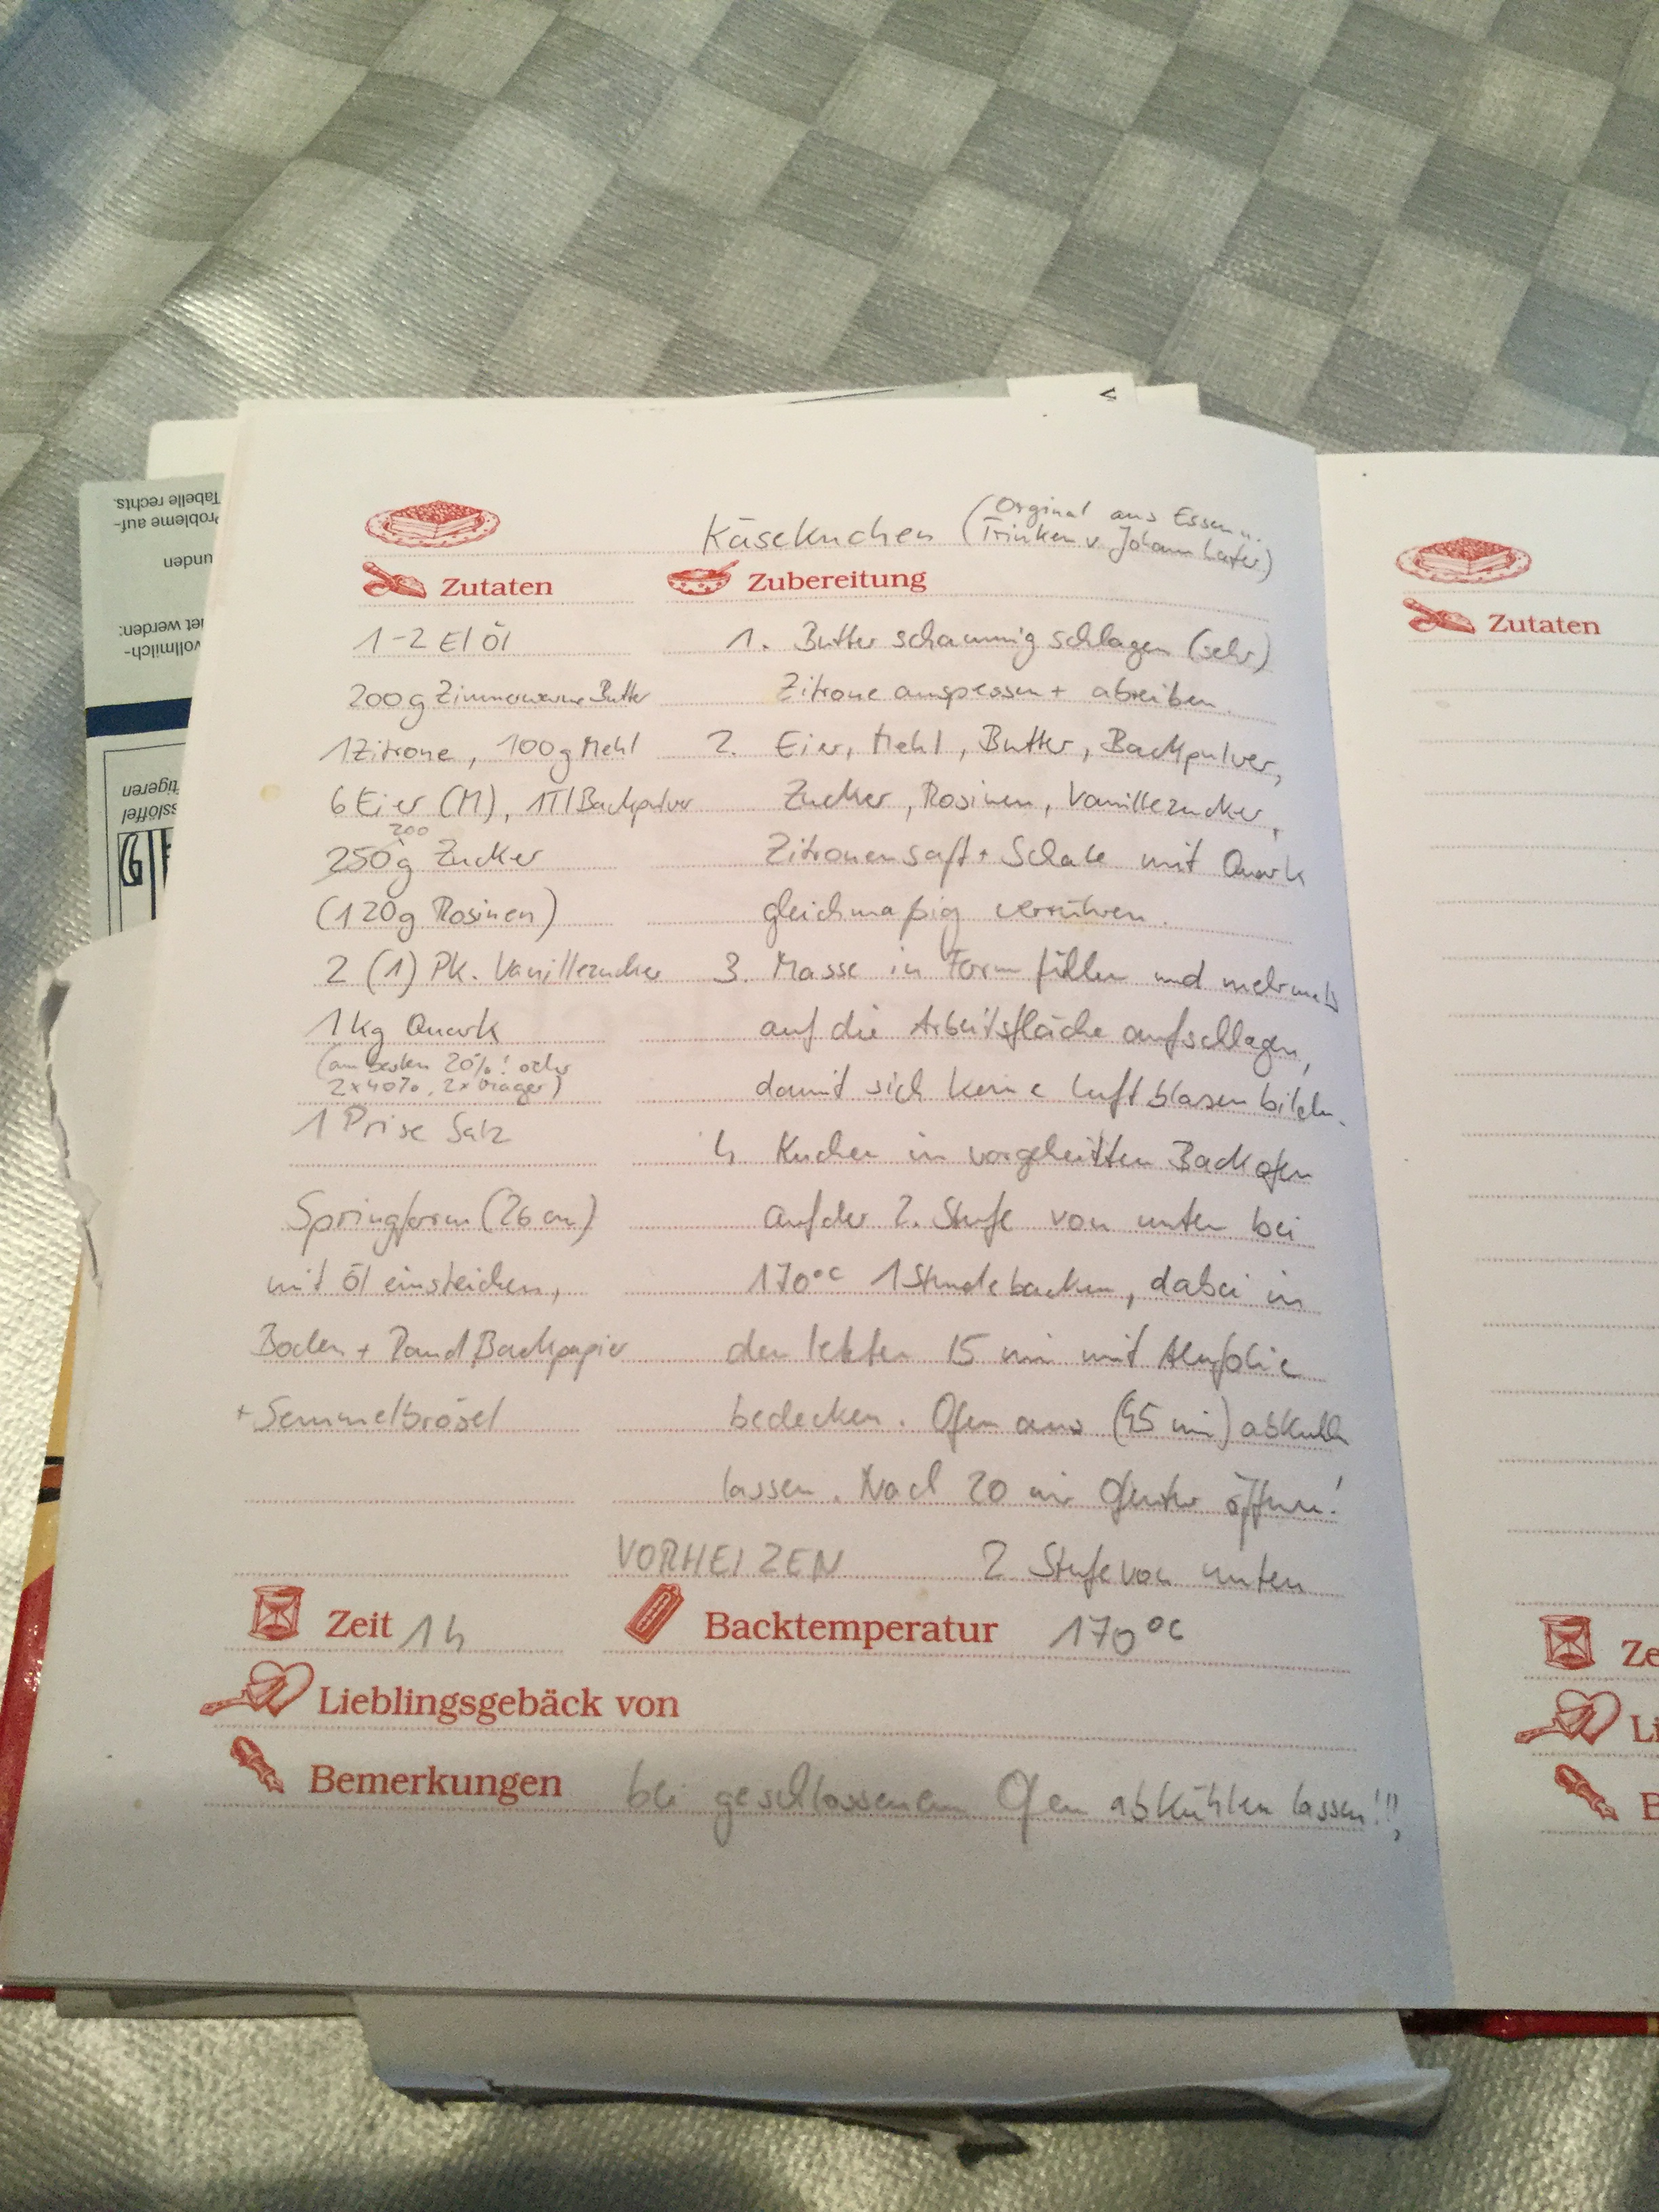 Käsekuchen (Orginal aus Essen u.
Trinken v. Johann Lafer)
Zutaten
1-2 El Öl
200g Zimmerwarme Butter
1 Zitrone, 100g Mehl
6 Eier (M), 1Tl Backpulver
200
250g Zucker
(120g Rosinen)
2 (1) Pk. Vanillezucker
1 kg Quark
(am besten 20%! oder
2x40%, 2x Mager)
1 Prise Salz
Springform (26 cm)
mit Öl einsteichen,
Boden + Rand Backpapier
+ Semmelbrösel
Zubereitung
1. Butter schaumig schlagen (sehr)
Zitrone auspressen + abreiben
2. Eier, Mehl, Butter, Backpulver,
Zucker, Rosinen, Vanillezucker,
Zitronensaft + Schale mit Quark
gleichmaßig verrühren.
3. Masse in Form füllen und mehrmals
auf die Arbeitsfläche aufschlagen,
damit sich keine Luftblasen bilden.
4 Kuchen in vorgeheitten Backofen
auf der 2. Stufe von unten bei
170°C 1 Stunde backen, dabei in
den letzten 15 min mit Alufolie
bedecken. Ofen aus (45 min) abkühlen
lassen. Nach 20 min Ofentür öffnen!
VORHEIZEN 2 Stufe von unten
Zeit 1h
Backtemperatur 170°C
Lieblingsgebäck von
Bemerkungen bei geschlossenem Ofen abkühlen lassen!!!
Zutaten
Ze
Li
B
Tabelle rechts.
Probleme auf-
unden
et werden:
vollmilch-
tigeren
sslöffel
V